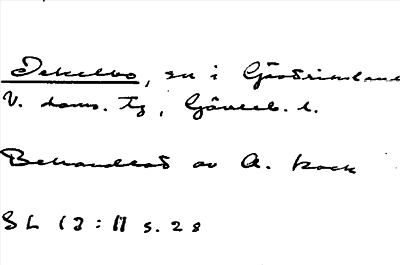 Iekelbo, sn i Gästrikland
V. doms. tg, Gävleb. l.
Behandlat av A. Kock
SL 13:11 s. 28